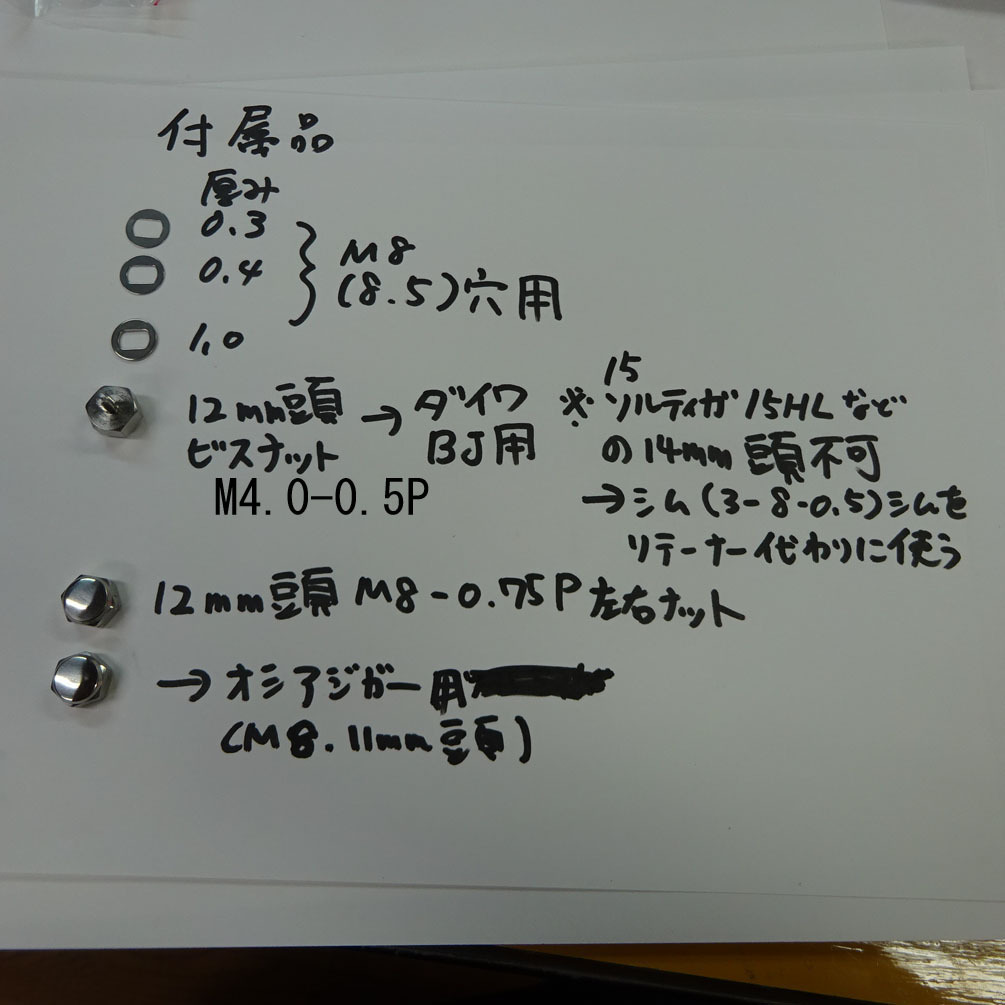 付属品
厚み
0.3
0.4
1.0
M8
(8.5)穴用
12mm頭
ビスナット
→ ダイワ
BJ用
M4.0-0.5P
※ 15
ソルティガ15HLなど
の14mm頭不可
→シム(3-8-0.5)シムを
リテーナー代わりに使う
12mm頭 M8-0.75P 左右ナット
→ オシアジガー用
(M8.11mm頭)